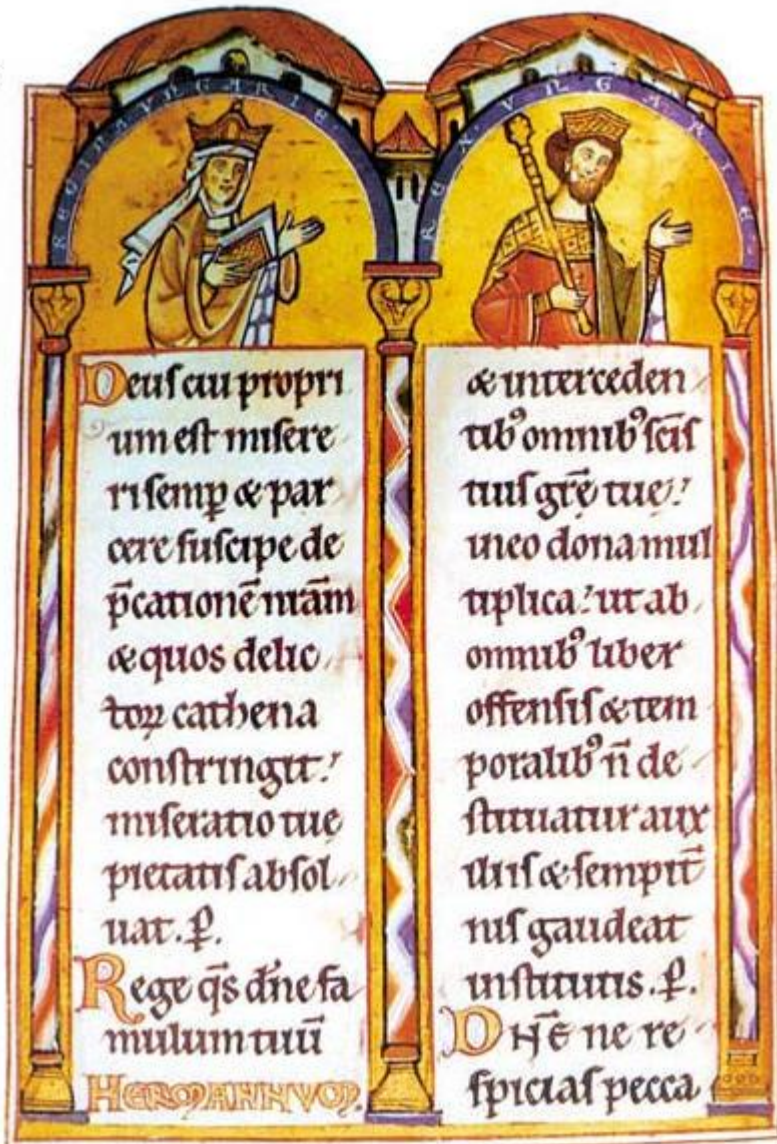 REGINA VNGARIE
REX VNGARIE
Deuſ cui propri
um eſt miſere
ri ſemꝑ & par
cere ſuſcipe de
p̄cationē nr̄am
& quos delic
toꝝ cathena
conſtringit:
miſeratio tue
pietatiſ abſol
uat. P̲.
Rege q̄s dn̄e fa
mulum tuū
HERMANNVM.
& interceden
tib⁹ omnib⁹ ſc̄iſ
tuiſ grē tue:
in eo dona mul
tiplica: ut ab
omnib⁹ liber
offenſiſ & tem
poralib⁹ n̄ de
ſtituatur aux
iliis & ſempit̄
niſ gaudeat
inſtitutis. P̲.
DN̄E ne re
ſpiciaſ pecca